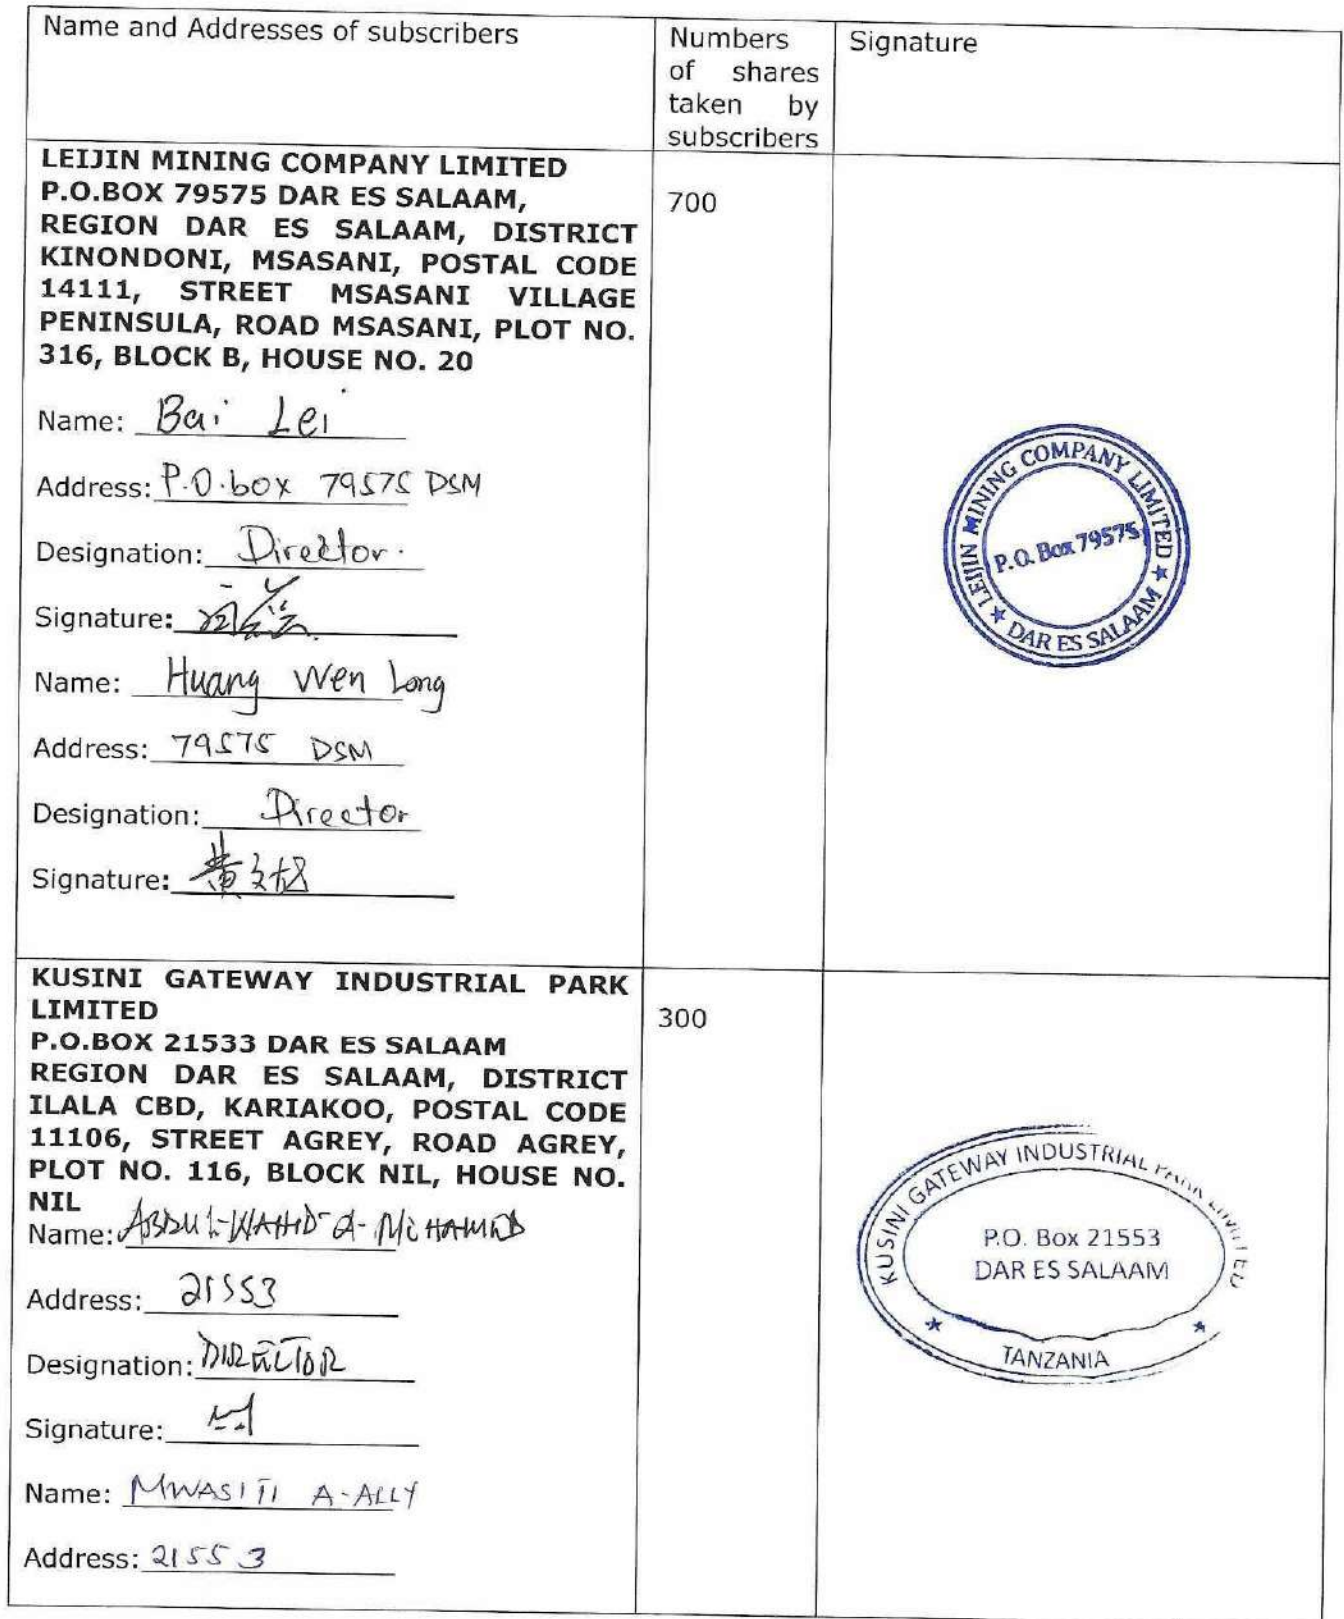 Name and Addresses of subscribers
Numbers
of shares
taken by
subscribers
Signature
LEIJIN MINING COMPANY LIMITED
P.O.BOX 79575 DAR ES SALAAM,
REGION DAR ES SALAAM, DISTRICT
KINONDONI, MSASANI, POSTAL CODE
14111, STREET MSASANI VILLAGE
PENINSULA, ROAD MSASANI, PLOT NO.
316, BLOCK B, HOUSE NO. 20
700
Name: Bai Lei
Address: P.O.box 79575 DSM
Designation: Director.
Signature:
Name: Huang Wen Long
Address: 79575 DSM
Designation: Director
Signature: 黄文
LEIJIN MINING COMPANY LIMITED
P.O. Box 79575
★ DAR ES SALAAM ★
KUSINI GATEWAY INDUSTRIAL PARK
LIMITED
P.O.BOX 21533 DAR ES SALAAM
REGION DAR ES SALAAM, DISTRICT
ILALA CBD, KARIAKOO, POSTAL CODE
11106, STREET AGREY, ROAD AGREY,
PLOT NO. 116, BLOCK NIL, HOUSE NO.
NIL
300
Name: ABDUL-WAHID-A-MOHAMED
Address: 21553
Designation: DIRECTOR
Signature:
Name: MWASITI A-ALLY
Address: 21553
KUSINI GATEWAY INDUSTRIAL PARK LIMITED
P.O. Box 21553
DAR ES SALAAM
★ TANZANIA ★